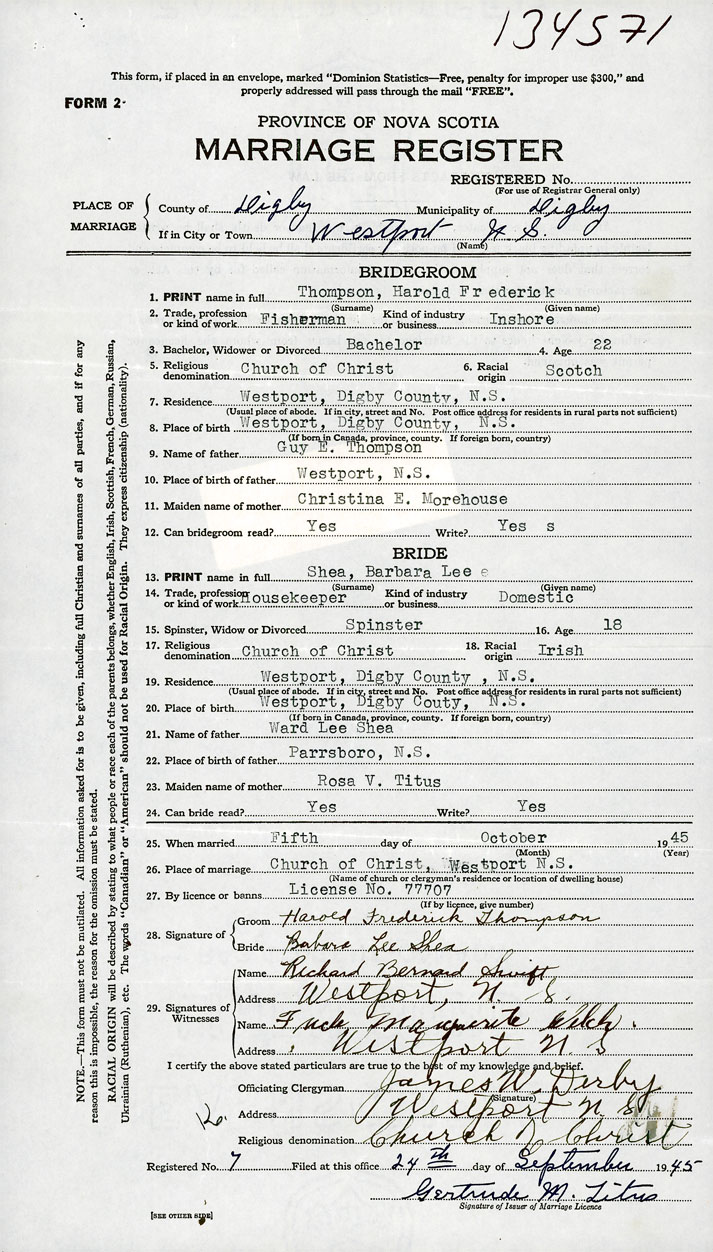 134571
This form, if placed in an envelope, marked "Dominion Statistics—Free, penalty for improper use $300," and
properly addressed will pass through the mail "FREE".
FORM 2.
PROVINCE OF NOVA SCOTIA
MARRIAGE REGISTER
REGISTERED No.
(For use of Registrar General only)
PLACE OF MARRIAGE
County of Digby Municipality of Digby
If in City or Town Westport N.S.
(Name)
BRIDEGROOM
1. PRINT name in full Thompson, Harold Frederick
(Surname) (Given name)
2. Trade, profession or kind of work Fisherman Kind of industry or business Inshore
3. Bachelor, Widower or Divorced Bachelor 4. Age 22
5. Religious denomination Church of Christ 6. Racial origin Scotch
7. Residence Westport, Digby County, N.S.
(Usual place of abode. If in city, street and No. Post office address for residents in rural parts not sufficient)
8. Place of birth Westport, Digby County, N.S.
(If born in Canada, province, county. If foreign born, country)
9. Name of father Guy E. Thompson
10. Place of birth of father Westport, N.S.
11. Maiden name of mother Christina E. Morehouse
12. Can bridegroom read? Yes Write? Yes s
BRIDE
13. PRINT name in full Shea, Barbara Lee e
(Surname) (Given name)
14. Trade, profession or kind of work Housekeeper Kind of industry or business Domestic
15. Spinster, Widow or Divorced Spinster 16. Age 18
17. Religious denomination Church of Christ 18. Racial origin Irish
19. Residence Westport, Digby County , N.S.
(Usual place of abode. If in city, street and No. Post office address for residents in rural parts not sufficient)
20. Place of birth Westport, Digby Couty, N.S.
(If born in Canada, province, county. If foreign born, country)
21. Name of father Ward Lee Shea
22. Place of birth of father Parrsboro, N.S.
23. Maiden name of mother Rosa V. Titus
24. Can bride read? Yes Write? Yes
25. When married Fifth day of October 1945
(Month) (Year)
26. Place of marriage Church of Christ, Westport N.S.
(Name of church or clergyman's residence or location of dwelling house)
27. By licence or banns License No. 77707
(If by licence, give number)
28. Signature of
Groom Harold Frederick Thompson
Bride Barbara Lee Shea
29. Signatures of Witnesses
Name Richard Bernard Swift
Address Westport, N. S.
Name Marguerite
Address Westport N. S
I certify the above stated particulars are true to the best of my knowledge and belief.
Officiating Clergyman James W. Derby
(Signature)
Address Westport N S
Religious denomination Church of Christ
Registered No. 7 Filed at this office 24th day of September 1945
Gertrude M. Titus
Signature of Issuer of Marriage Licence
[SEE OTHER SIDE]
NOTE.—This form must not be mutilated. All information asked for is to be given, including full Christian and surnames of all parties, and if for any
reason this is impossible, the reason for the omission must be stated.
RACIAL ORIGIN will be described by stating to what people or race each of the parents belongs, whether English, Irish, Scottish, French, German, Russian,
Ukrainian (Ruthenian), etc. The words "Canadian" or "American" should not be used for Racial Origin. They express citizenship (nationality).